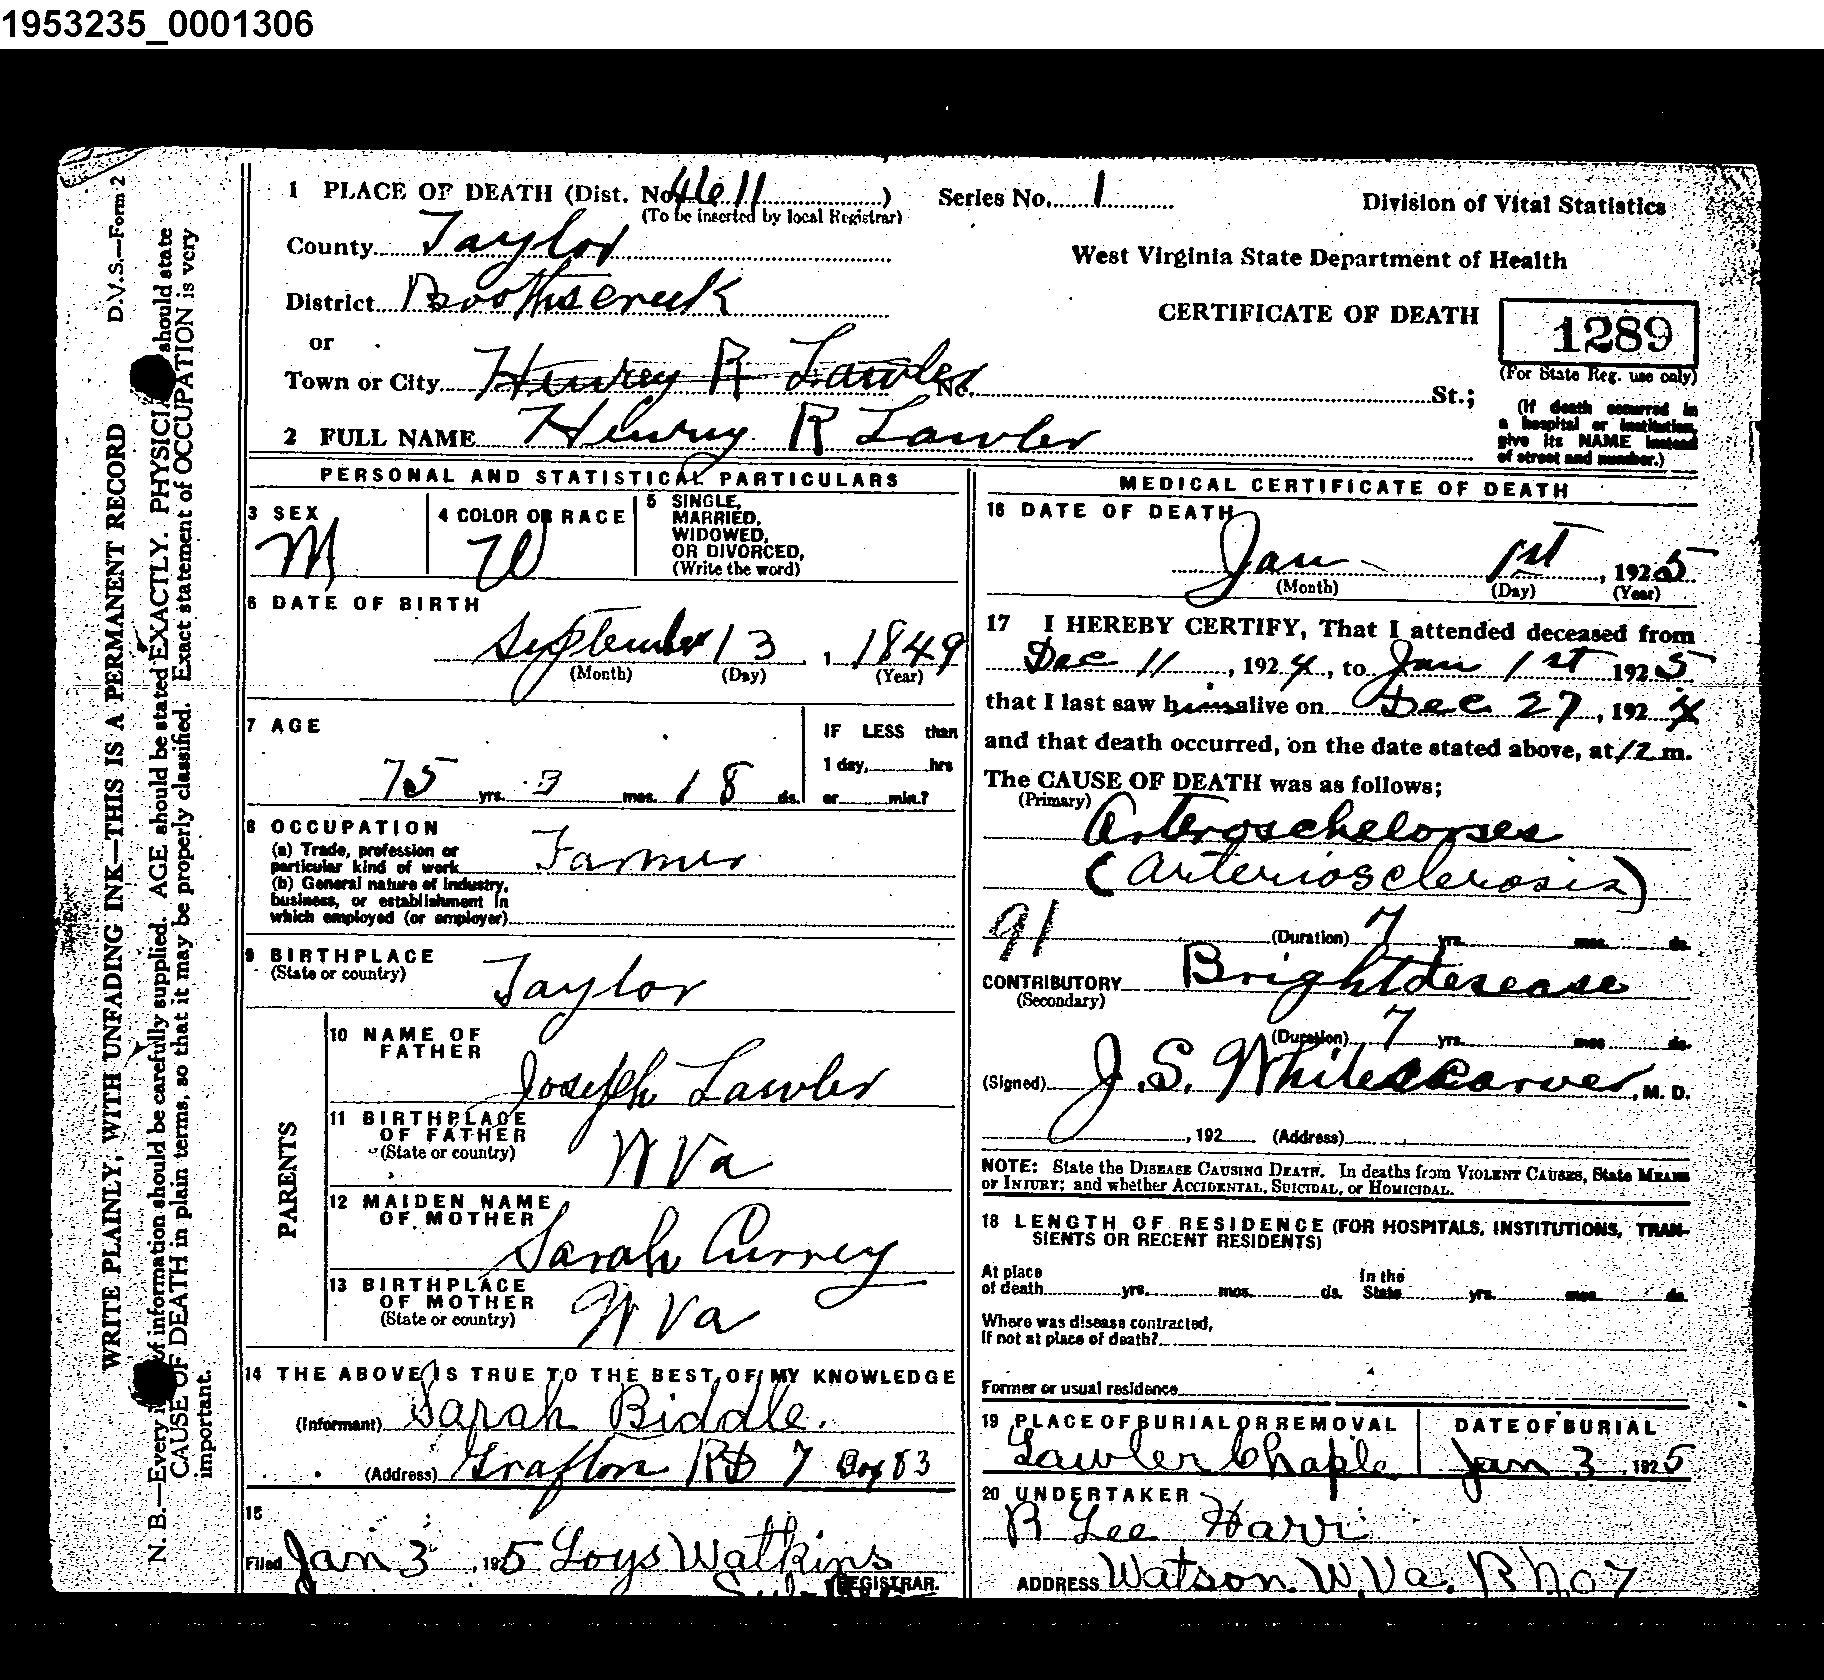 1953235_0001306
D.V.S.—Form 2
WRITE PLAINLY, WITH UNFADING INK—THIS IS A PERMANENT RECORD
N. B.—Every of information should be carefully supplied. AGE should be stated EXACTLY. PHYSICIA should state
CAUSE OF DEATH in plain terms, so that it may be properly classified. Exact statement of OCCUPATION is very
important.
1 PLACE OF DEATH (Dist. No. 4611) Series No. 1
(To be inserted by local Registrar)
Division of Vital Statistics
County Taylor
West Virginia State Department of Health
District Boothscreek
CERTIFICATE OF DEATH 1289
(For State Reg. use only)
or
Town or City Henrey R Lawler No. St.;
(If death occurred in
a hospital or institution,
give its NAME instead
of street and number.)
2 FULL NAME Henry R Lawler
PERSONAL AND STATISTICAL PARTICULARS
3 SEX
M
4 COLOR OR RACE
W
5 SINGLE,
MARRIED,
WIDOWED,
OR DIVORCED,
(Write the word)
6 DATE OF BIRTH
September 13, 1849
(Month) (Day) (Year)
7 AGE
75 yrs. 3 mos. 18 ds.
IF LESS than
1 day, hrs
or min.?
8 OCCUPATION
(a) Trade, profession or
particular kind of work Farmer
(b) General nature of industry,
business, or establishment in
which employed (or employer)
9 BIRTHPLACE
(State or country) Taylor
PARENTS
10 NAME OF
FATHER
Joseph Lawler
11 BIRTHPLACE
OF FATHER
(State or country) W Va
12 MAIDEN NAME
OF MOTHER
Sarah Currey
13 BIRTHPLACE
OF MOTHER
(State or country) W Va
14 THE ABOVE IS TRUE TO THE BEST OF MY KNOWLEDGE
(Informant) Sarah Biddle.
(Address) Grafton RD 7 Box 83
15
Filed Jan 3, 1925 Loys Watkins
REGISTRAR.
MEDICAL CERTIFICATE OF DEATH
16 DATE OF DEATH
Jan 1st, 1925
(Month) (Day) (Year)
17 I HEREBY CERTIFY, That I attended deceased from
Dec 11, 1924, to Jan 1st 1925
that I last saw him alive on Dec 27, 1924
and that death occurred, on the date stated above, at 12 m.
The CAUSE OF DEATH was as follows;
(Primary)
Arteroschelorses
(Arteriosclerosis)
91 (Duration) 7 yrs. mos. ds.
CONTRIBUTORY Bright desease
(Secondary)
(Duration) 7 yrs. mos. ds.
(Signed) J. S. Whitescarver, M. D.
, 192 (Address)
NOTE: State the DISEASE CAUSING DEATH. In deaths from VIOLENT CAUSES, State MEANS
OF INJURY; and whether ACCIDENTAL, SUICIDAL, or HOMICIDAL.
18 LENGTH OF RESIDENCE (FOR HOSPITALS, INSTITUTIONS, TRAN-
SIENTS OR RECENT RESIDENTS)
At place
of death yrs. mos. ds.
In the
State yrs. mos. ds.
Where was disease contracted,
If not at place of death?
Former or usual residence
19 PLACE OF BURIAL OR REMOVAL
Lawler Chaple
DATE OF BURIAL
Jan 3 1925
20 UNDERTAKER
R Lee Harr
ADDRESS Watson. W.Va.